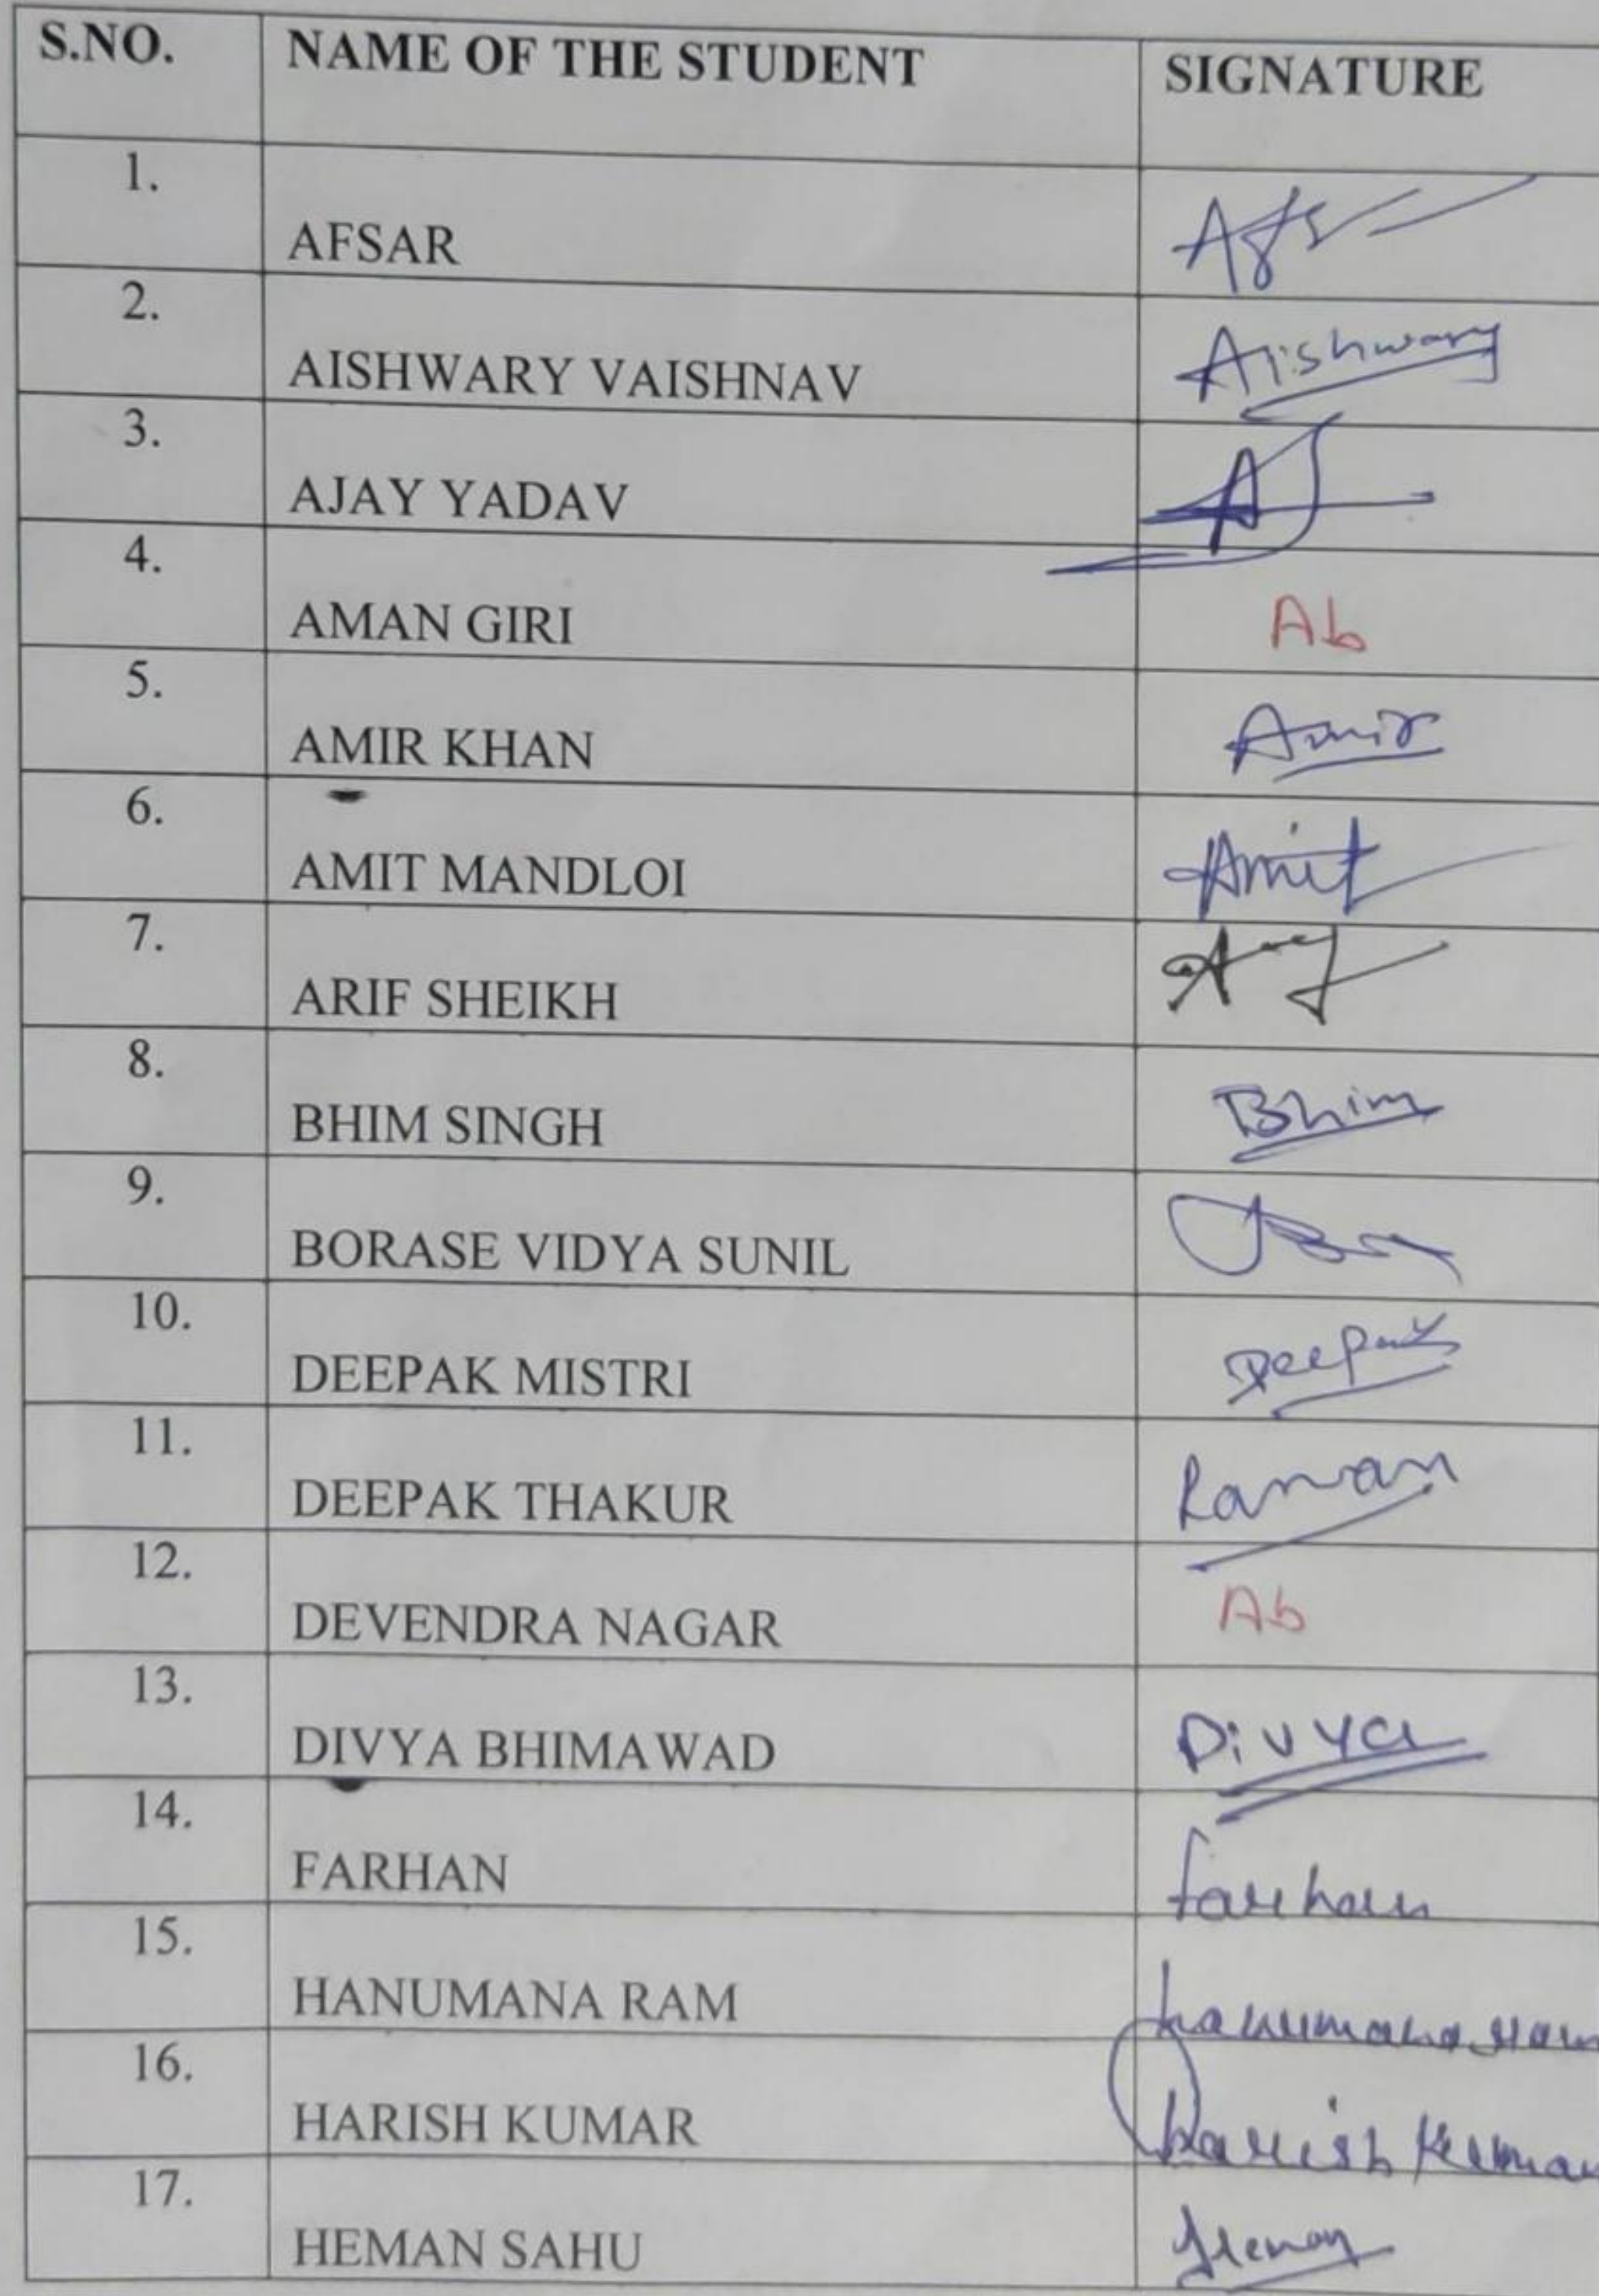 S.NO. NAME OF THE STUDENT SIGNATURE
1. AFSAR
2. AISHWARY VAISHNAV Aishwary
3. AJAY YADAV AJ
4. AMAN GIRI Ab
5. AMIR KHAN Amir
6. AMIT MANDLOI Amit
7. ARIF SHEIKH
8. BHIM SINGH Bhim
9. BORASE VIDYA SUNIL
10. DEEPAK MISTRI Deepak
11. DEEPAK THAKUR Raman
12. DEVENDRA NAGAR Ab
13. DIVYA BHIMAWAD Divya
14. FARHAN farhan
15. HANUMANA RAM hanumana ram
16. HARISH KUMAR harish Kumar
17. HEMAN SAHU Heman